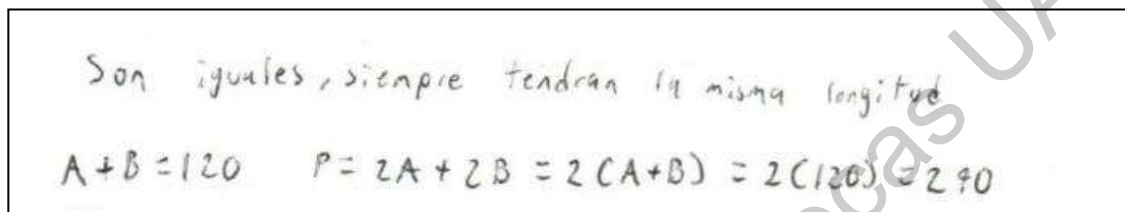 Son iguales, siempre tendran la misma longitud
A+B=120 P= 2A + 2B = 2(A+B) = 2(120) = 240